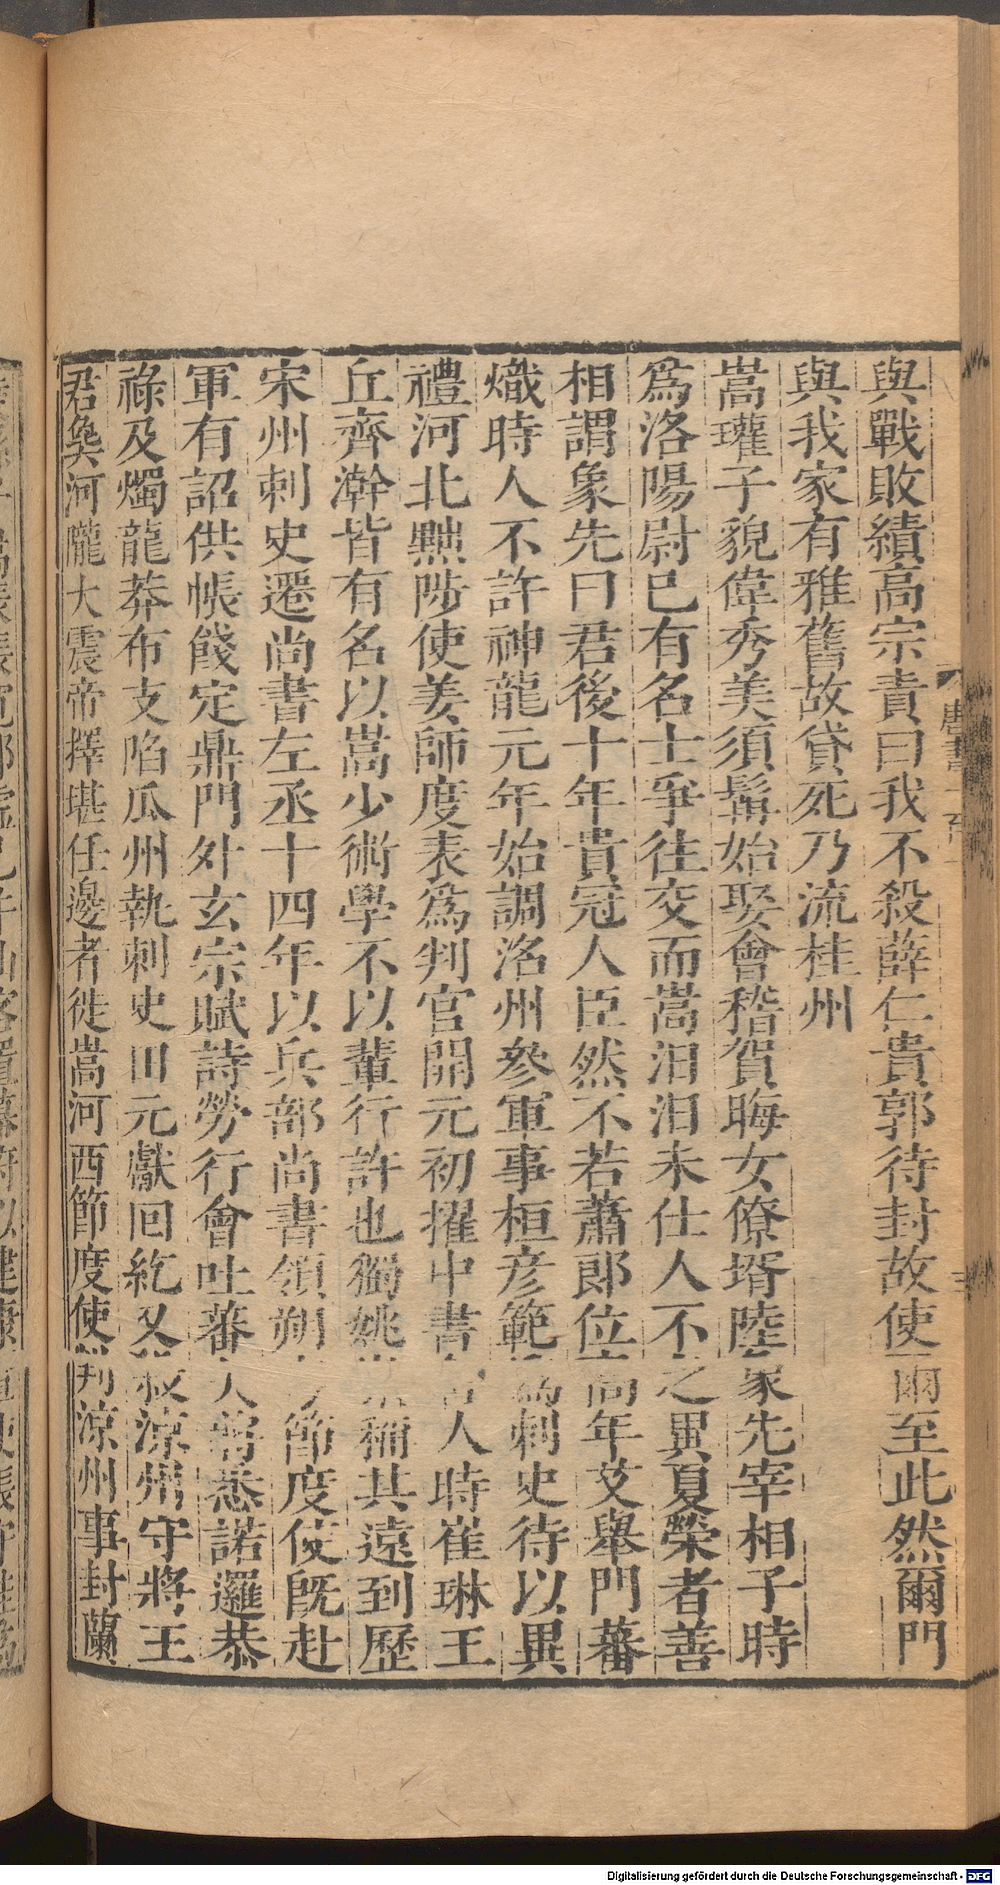 與戰敗績高宗責曰我不殺薛仁貴郭待封故使爾至此然爾門
與我家有雅舊故貸死乃流桂州
嵩瓘子貌偉秀美須髯始娶會稽賀晦女僚壻陸象先宰相子時
爲洛陽尉已有名士爭往交而嵩汨汨未仕人不之異夏榮者善
相謂象先曰君後十年貴冠人臣然不若蕭郎位高年艾舉門蕃
熾時人不許神龍元年始調洺州參軍事桓彥範爲刺史待以異
禮河北黜陟使姜師度表爲判官開元初擢中書舍人時崔琳王
丘齊澣皆有名以嵩少術學不以輩行許也獨姚崇稱其遠到歷
宋州刺史遷尚書左丞十四年以兵部尚書領朔方節度使既赴
軍有詔供帳餞定鼎門外玄宗賦詩勞行會吐蕃大將悉諾邏恭
祿及燭龍莽布支陷瓜州執刺史田元獻回紇又殺涼州守將王
君㚟河隴大震帝擇堪任邊者徙嵩河西節度使判涼州事封蘭
唐書一百一
Digitalisierung gefördert durch die Deutsche Forschungsgemeinschaft - DFG